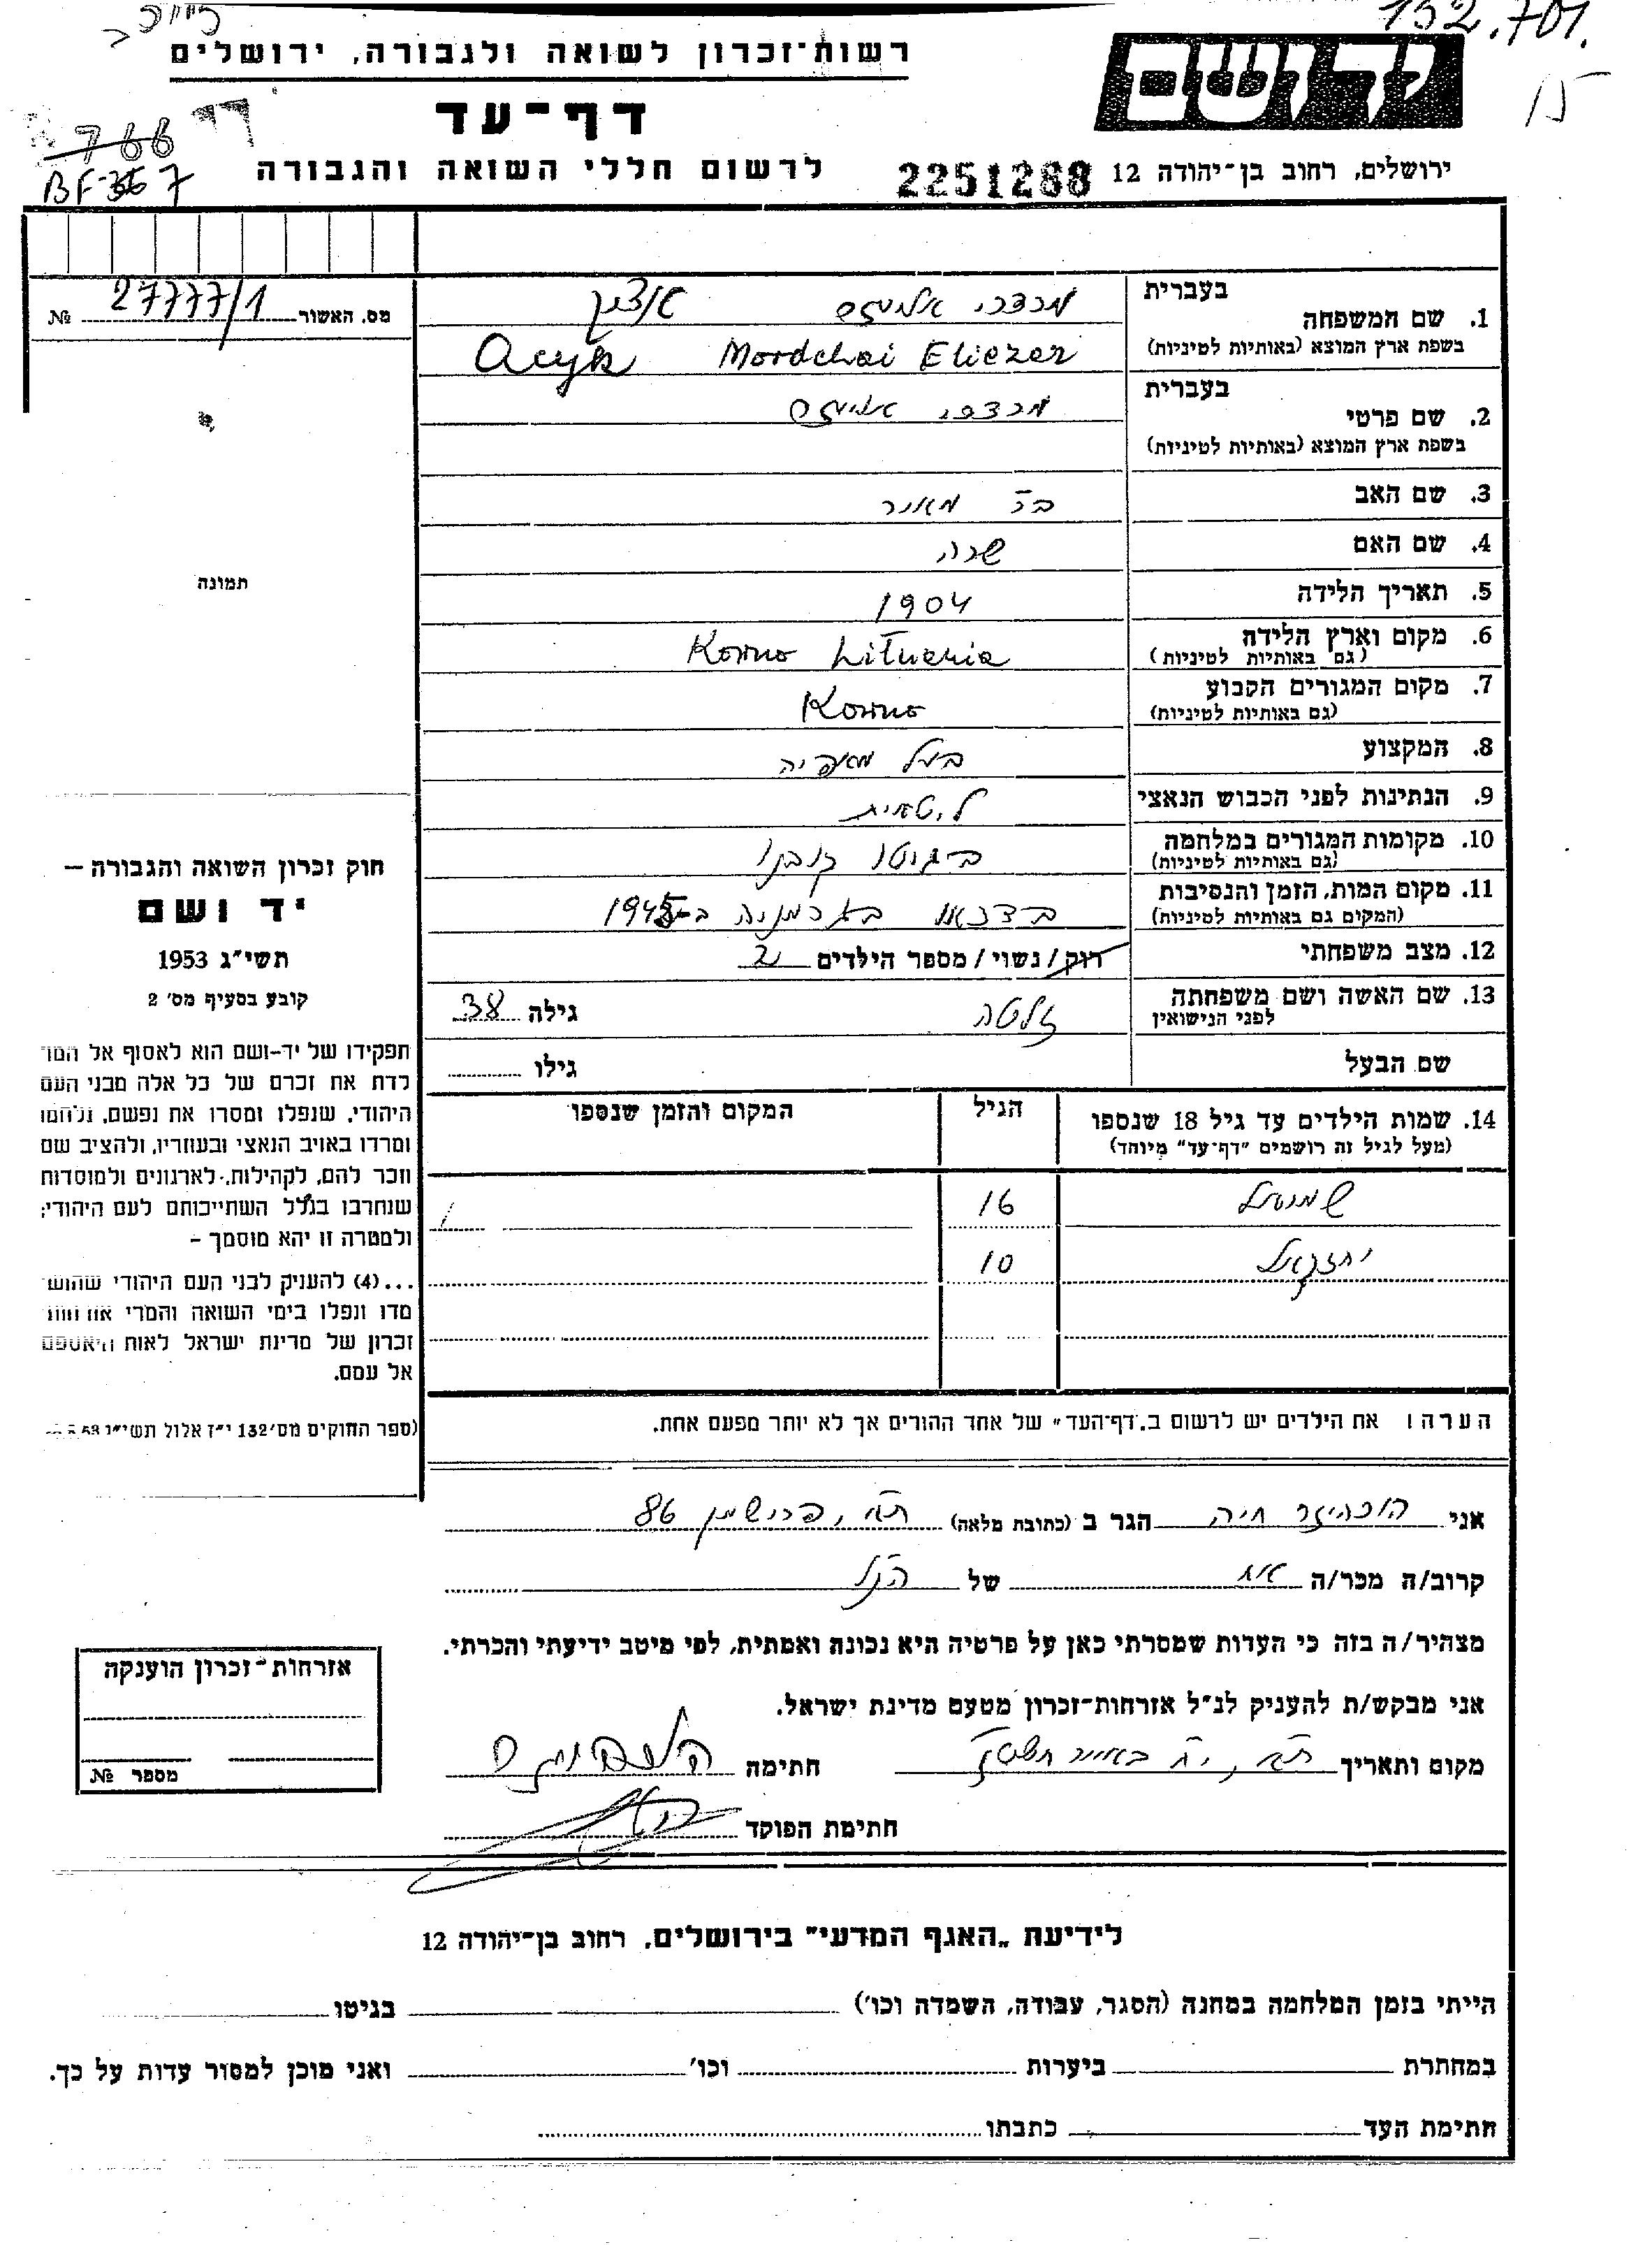 152.701.
15
יד ושם
רשות־זכרון לשואה ולגבורה, ירושלים
דף־עד
לרשום חללי השואה והגבורה
ירושלים, רחוב בן־יהודה 12
2251268
766
BF-357
מס. האשור 27777/1 №
תמונה
חוק זכרון השואה והגבורה –
יד ושם
תשי״ג 1953
קובע בסעיף מס׳ 2
תפקידו של יד–ושם הוא לאסוף אל המו
לדת את זכרם של כל אלה מבני העם
היהודי, שנפלו ומסרו את נפשם, נלחמו
ומרדו באויב הנאצי ובעוזריו, ולהציב שם
וזכר להם, לקהילות, לארגונים ולמוסדות
שנחרבו בגלל השתייכותם לעם היהודי;
ולמטרה זו יהא מוסמך –
...(4) להעניק לבני העם היהודי שהוש
מדו ונפלו בימי השואה והמרי אזרחות
זכרון של מדינת ישראל לאות היאספם
אל עמם.
(ספר החוקים מס׳ 132 י״ז אלול תשי״ג
בעברית
1. שם המשפחה מרדכי אליעזר אוציק
בשפת ארץ המוצא (באותיות לטיניות) Acyk Mordchai Eliezer
בעברית
2. שם פרטי מרדכי אליעזר
בשפת ארץ המוצא (באותיות לטיניות)
3. שם האב מאיר
4. שם האם שרה
5. תאריך הלידה 1904
6. מקום וארץ הלידה Kowno Lituania
(גם באותיות לטיניות)
7. מקום המגורים הקבוע Kowno
(גם באותיות לטיניות)
8. המקצוע בעל מאפיה
9. הנתינות לפני הכבוש הנאצי ליטאית
10. מקומות המגורים במלחמה בגיטו קובנו
(גם באותיות לטיניות)
11. מקום המות, הזמן והנסיבות בדכאו בגרמניה ב-1945
(המקום גם באותיות לטיניות)
12. מצב משפחתי רווק/נשוי/מספר הילדים 2
13. שם האשה ושם משפחתה זלטה גילה 38
לפני הנישואין
שם הבעל גילו
14. שמות הילדים עד גיל 18 שנספו הגיל המקום והזמן שנספו
(מעל לגיל זה רושמים "דף־עד" מיוחד)
שמואל 16
יחזקאל 10
הערה: את הילדים יש לרשום ב„דף־העד" של אחד ההורים אך לא יותר מפעם אחת.
אני חיה הגר ב (כתובת מלאה) ת״א, פרישמן 86
קרוב/ה מכר/ה אח של הנ״ל
מצהיר/ה בזה כי העדות שמסרתי כאן על פרטיה היא נכונה ואמתית, לפי מיטב ידיעתי והכרתי.
אני מבקש/ת להעניק לנ״ל אזרחות־זכרון מטעם מדינת ישראל.
מקום ותאריך ת״א, י״ח באייר חתימה
חתימת הפוקד
אזרחות־זכרון הוענקה
מספר №
לידיעת „האגף המדעי" בירושלים, רחוב בן־יהודה 12
הייתי בזמן המלחמה במחנה (הסגר, עבודה, השמדה וכו׳) בגיטו
במחתרת ביערות וכו׳ ואני מוכן למסור עדות על כך.
חתימת העד כתבתו